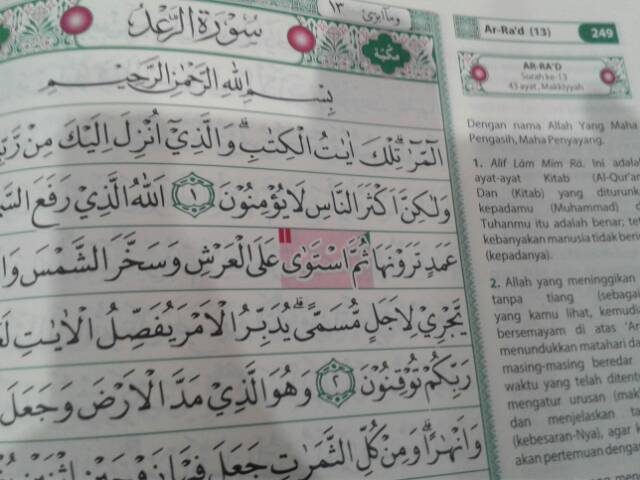 وماابرئ ١٣
سُوْرَةُ الرَّعْدِ
مكية
بِسْمِ اللّٰهِ الرَّحْمٰنِ الرَّحِيْمِ
الۤمّۤرٰۗ تِلْكَ اٰيٰتُ الْكِتٰبِۗ وَالَّذِيْٓ اُنْزِلَ اِلَيْكَ مِنْ
وَلٰكِنَّ اَكْثَرَ النَّاسِ لَا يُؤْمِنُوْنَ ١ اَللّٰهُ الَّذِيْ رَفَعَ
عَمَدٍ تَرَوْنَهَا ثُمَّ اسْتَوٰى عَلَى الْعَرْشِ وَسَخَّرَ الشَّمْسَ
يَّجْرِيْ لِاَجَلٍ مُّسَمًّىۗ يُدَبِّرُ الْاَمْرَ يُفَصِّلُ الْاٰيٰتِ
رَبِّكُمْ تُوْقِنُوْنَ ٢ وَهُوَ الَّذِيْ مَدَّ الْاَرْضَ وَجَعَلَ
وَاَنْهٰرًاۗ وَمِنْ كُلِّ الثَّمَرٰتِ جَعَلَ فِيْهَا زَوْجَيْنِ اثْنَيْنِ
Ar-Ra'd (13) 249
AR-RA'D
Surah ke-13
43 ayat, Makkiyyah
Dengan nama Allah Yang Maha
Pengasih, Maha Penyayang.
1. Alif Lām Mim Rā. Ini
ayat-ayat Kitab
Dan (Kitab) yang
kepadamu (Muhammad)
Tuhanmu itu adalah benar;
kebanyakan manusia tidak
(kepadanya).
2. Allah yang meninggikan
tanpa tiang
yang kamu lihat,
bersemayam di atas
menundukkan matahari
masing-masing beredar
waktu yang telah
mengatur urusan
dan menjelaskan
(kebesaran-Nya), agar
akan pertemuan